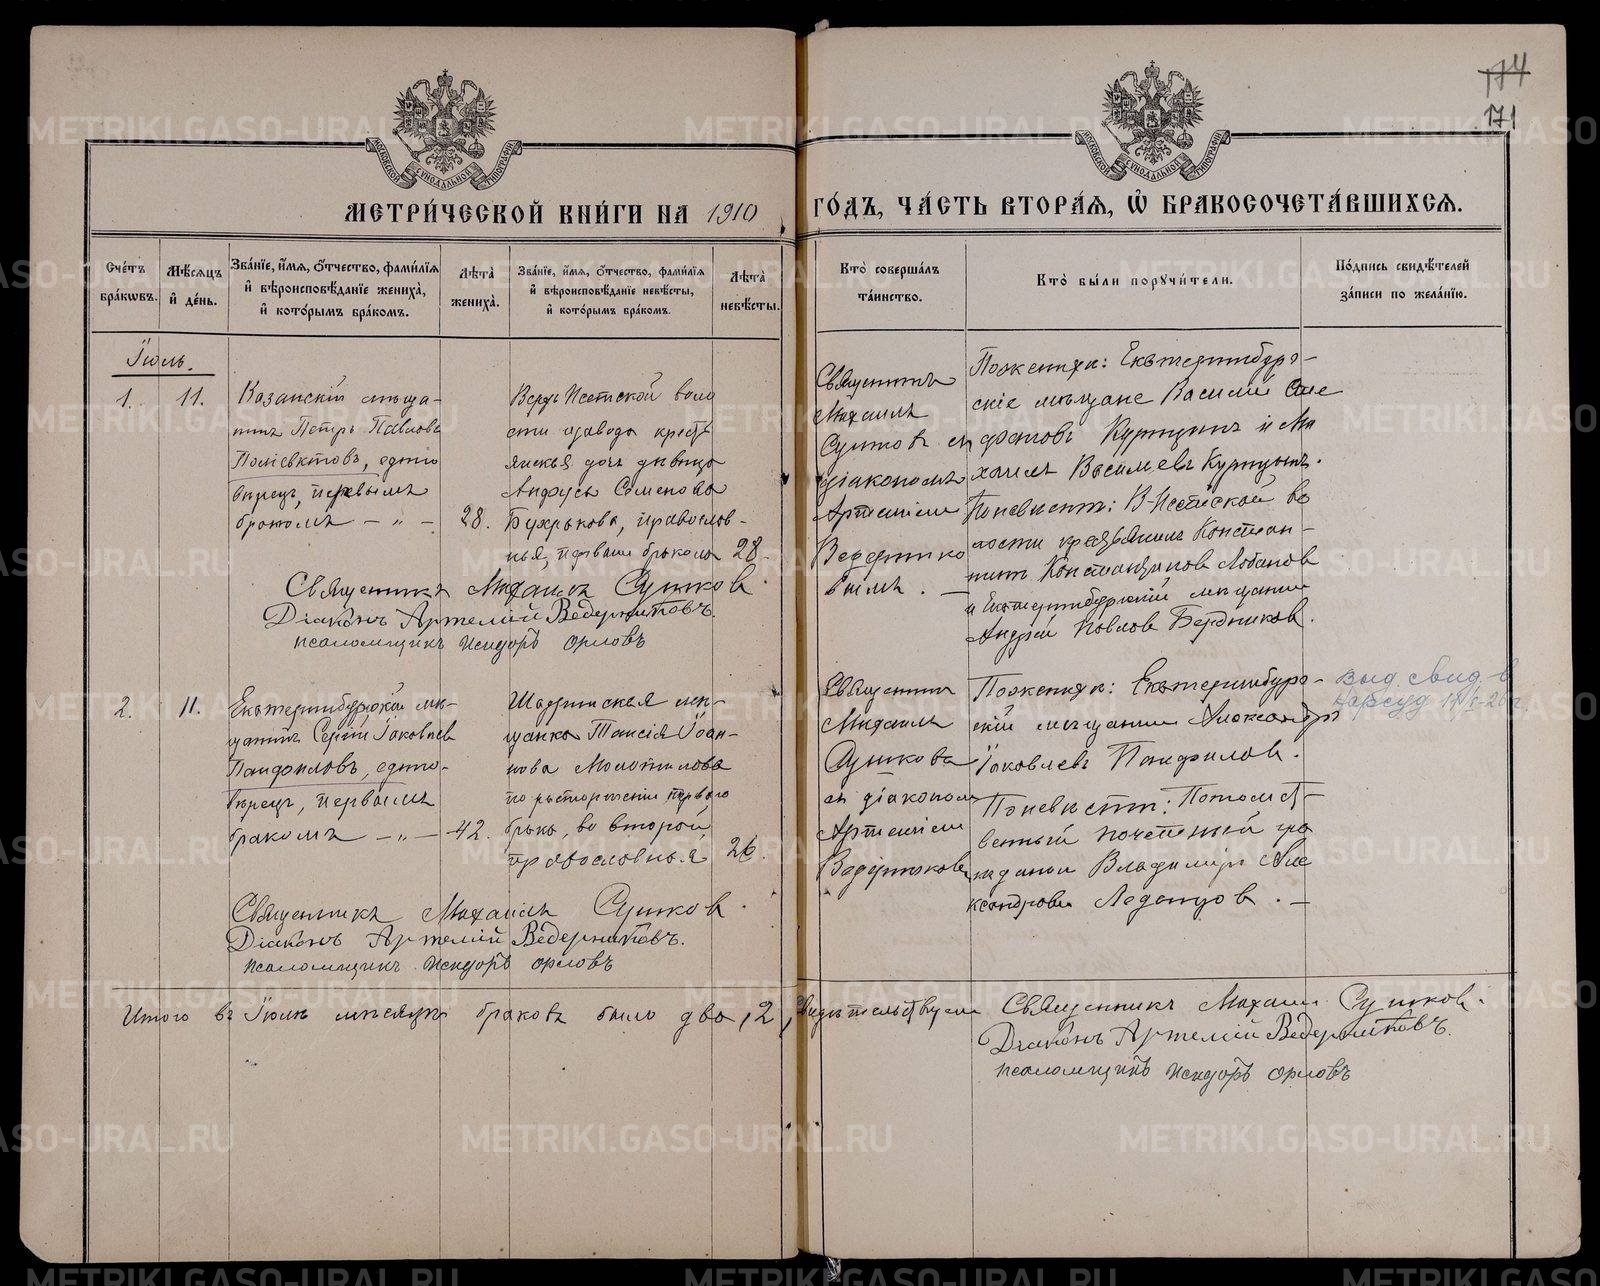 174
171
МЕТРИ́ЧЕСКОЙ КНИ́ГИ НА 1910 ГО́ДЪ, ЧА́СТЬ ВТОРА́Я, Ѽ БРАКОСОЧЕТА́ВШИХСЯ.
Сче́тъ бра́кѡвъ.
Мѣ́сяцъ и҆ де́нь.
Зва́нїе, и҆́мя, ѻ҆́тчество, фами́лїя
и҆ вѣроисповѣ́данїе жениха̀,
и҆ кото́рымъ бра́комъ.
Лѣ́та жениха̀.
Зва́нїе, и҆́мя, ѻ҆́тчество, фами́лїя
и҆ вѣроисповѣ́данїе невѣ́сты,
и҆ кото́рымъ бра́комъ.
Лѣ́та невѣ́сты.
Кто̀ соверша́лъ
та́инство.
Кто̀ бы́ли порꙋчи́тели.
По́дпись свидѣ́телей
за́писи по жела́нїю.
Іюль.
1. 11.
Казанскій мѣща-
нинъ Петръ Павловъ
Поліевктовъ, едино
вѣрецъ, первымъ
бракомъ — " —
28.
Верхъ Исетской воло
сти завода кресть
янская дочь дѣвица
Семенова
православ-
ная, первымъ бракомъ
28.
Священникъ
Михаилъ
Сушковъ съ
діакономъ
Артеміемъ
Ведернико
вымъ. —
По женихѣ: Екатеринбург-
скіе мѣщане Василій
и Ми
хаилъ Васильевъ
По невѣстѣ: В-Исетской во
лости крестьянинъ Констан-
тинъ Константиновъ Лобановъ
и Екатеринбургскій мѣщанинъ
Андрей Павловъ Бердниковъ.
Священникъ Михаилъ Сушковъ.
Діаконъ Артемій Ведерниковъ.
псаломщикъ Исидоръ Орловъ
2. 11.
Екатеринбургскій мѣ-
щанинъ Сергій Іаковлевъ
Панфиловъ, едино-
вѣрецъ, первымъ
бракомъ — " —
42.
Шадринская мѣ-
щанка Таисія Іоан-
нова Молотилова
по расторженіи перваго
брака, во второй,
православная
26.
Священникъ
Михаилъ
Сушковъ
съ діакономъ
Артеміемъ
Ведерниковы
По женихѣ: Екатеринбург-
скій мѣщанинъ Александръ
Іаковлевъ Панфиловъ.
По невѣстѣ: Потомст-
венный почетный гра
жданинъ Владиміръ Але
ксандровъ Леденцовъ. —
Выд. свид. в
Нарсуд
Священникъ Михаилъ Сушковъ.
Діаконъ Артемій Ведерниковъ.
псаломщикъ Исидоръ Орловъ
Итого въ Іюлѣ мѣсяцѣ браковъ было два, 2, свидѣтельствуемъ Священникъ Михаилъ Сушковъ.
Діаконъ Артемій Ведерниковъ.
псаломщикъ Исидоръ Орловъ
METRIKI.GASO-URAL.RU